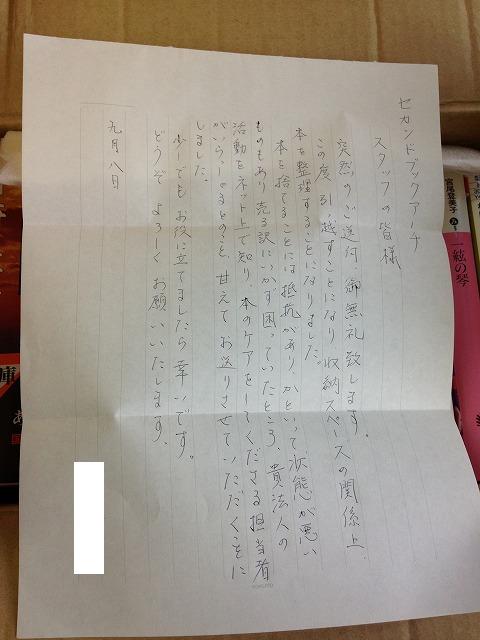 セカンドブックアーチ
スタッフの皆様
突然のご送付、御無礼致します。
この度、引っ越すことになり収納スペースの関係上、
本を整理することになりました。
本を捨てることには抵抗があり、かといって状態が悪い
ものもあり売る訳にいかず困っていたところ、貴法人の
活動をネット上で知り、本のケアをしてくださる担当者
がいらっしゃるとのこと、甘えてお送りさせていただくことに
しました。
少しでもお役に立てましたら幸いです。
どうぞよろしくお願いいたします。
九月八日
KOKUYO
宮尾登美子
一絃の琴
庫